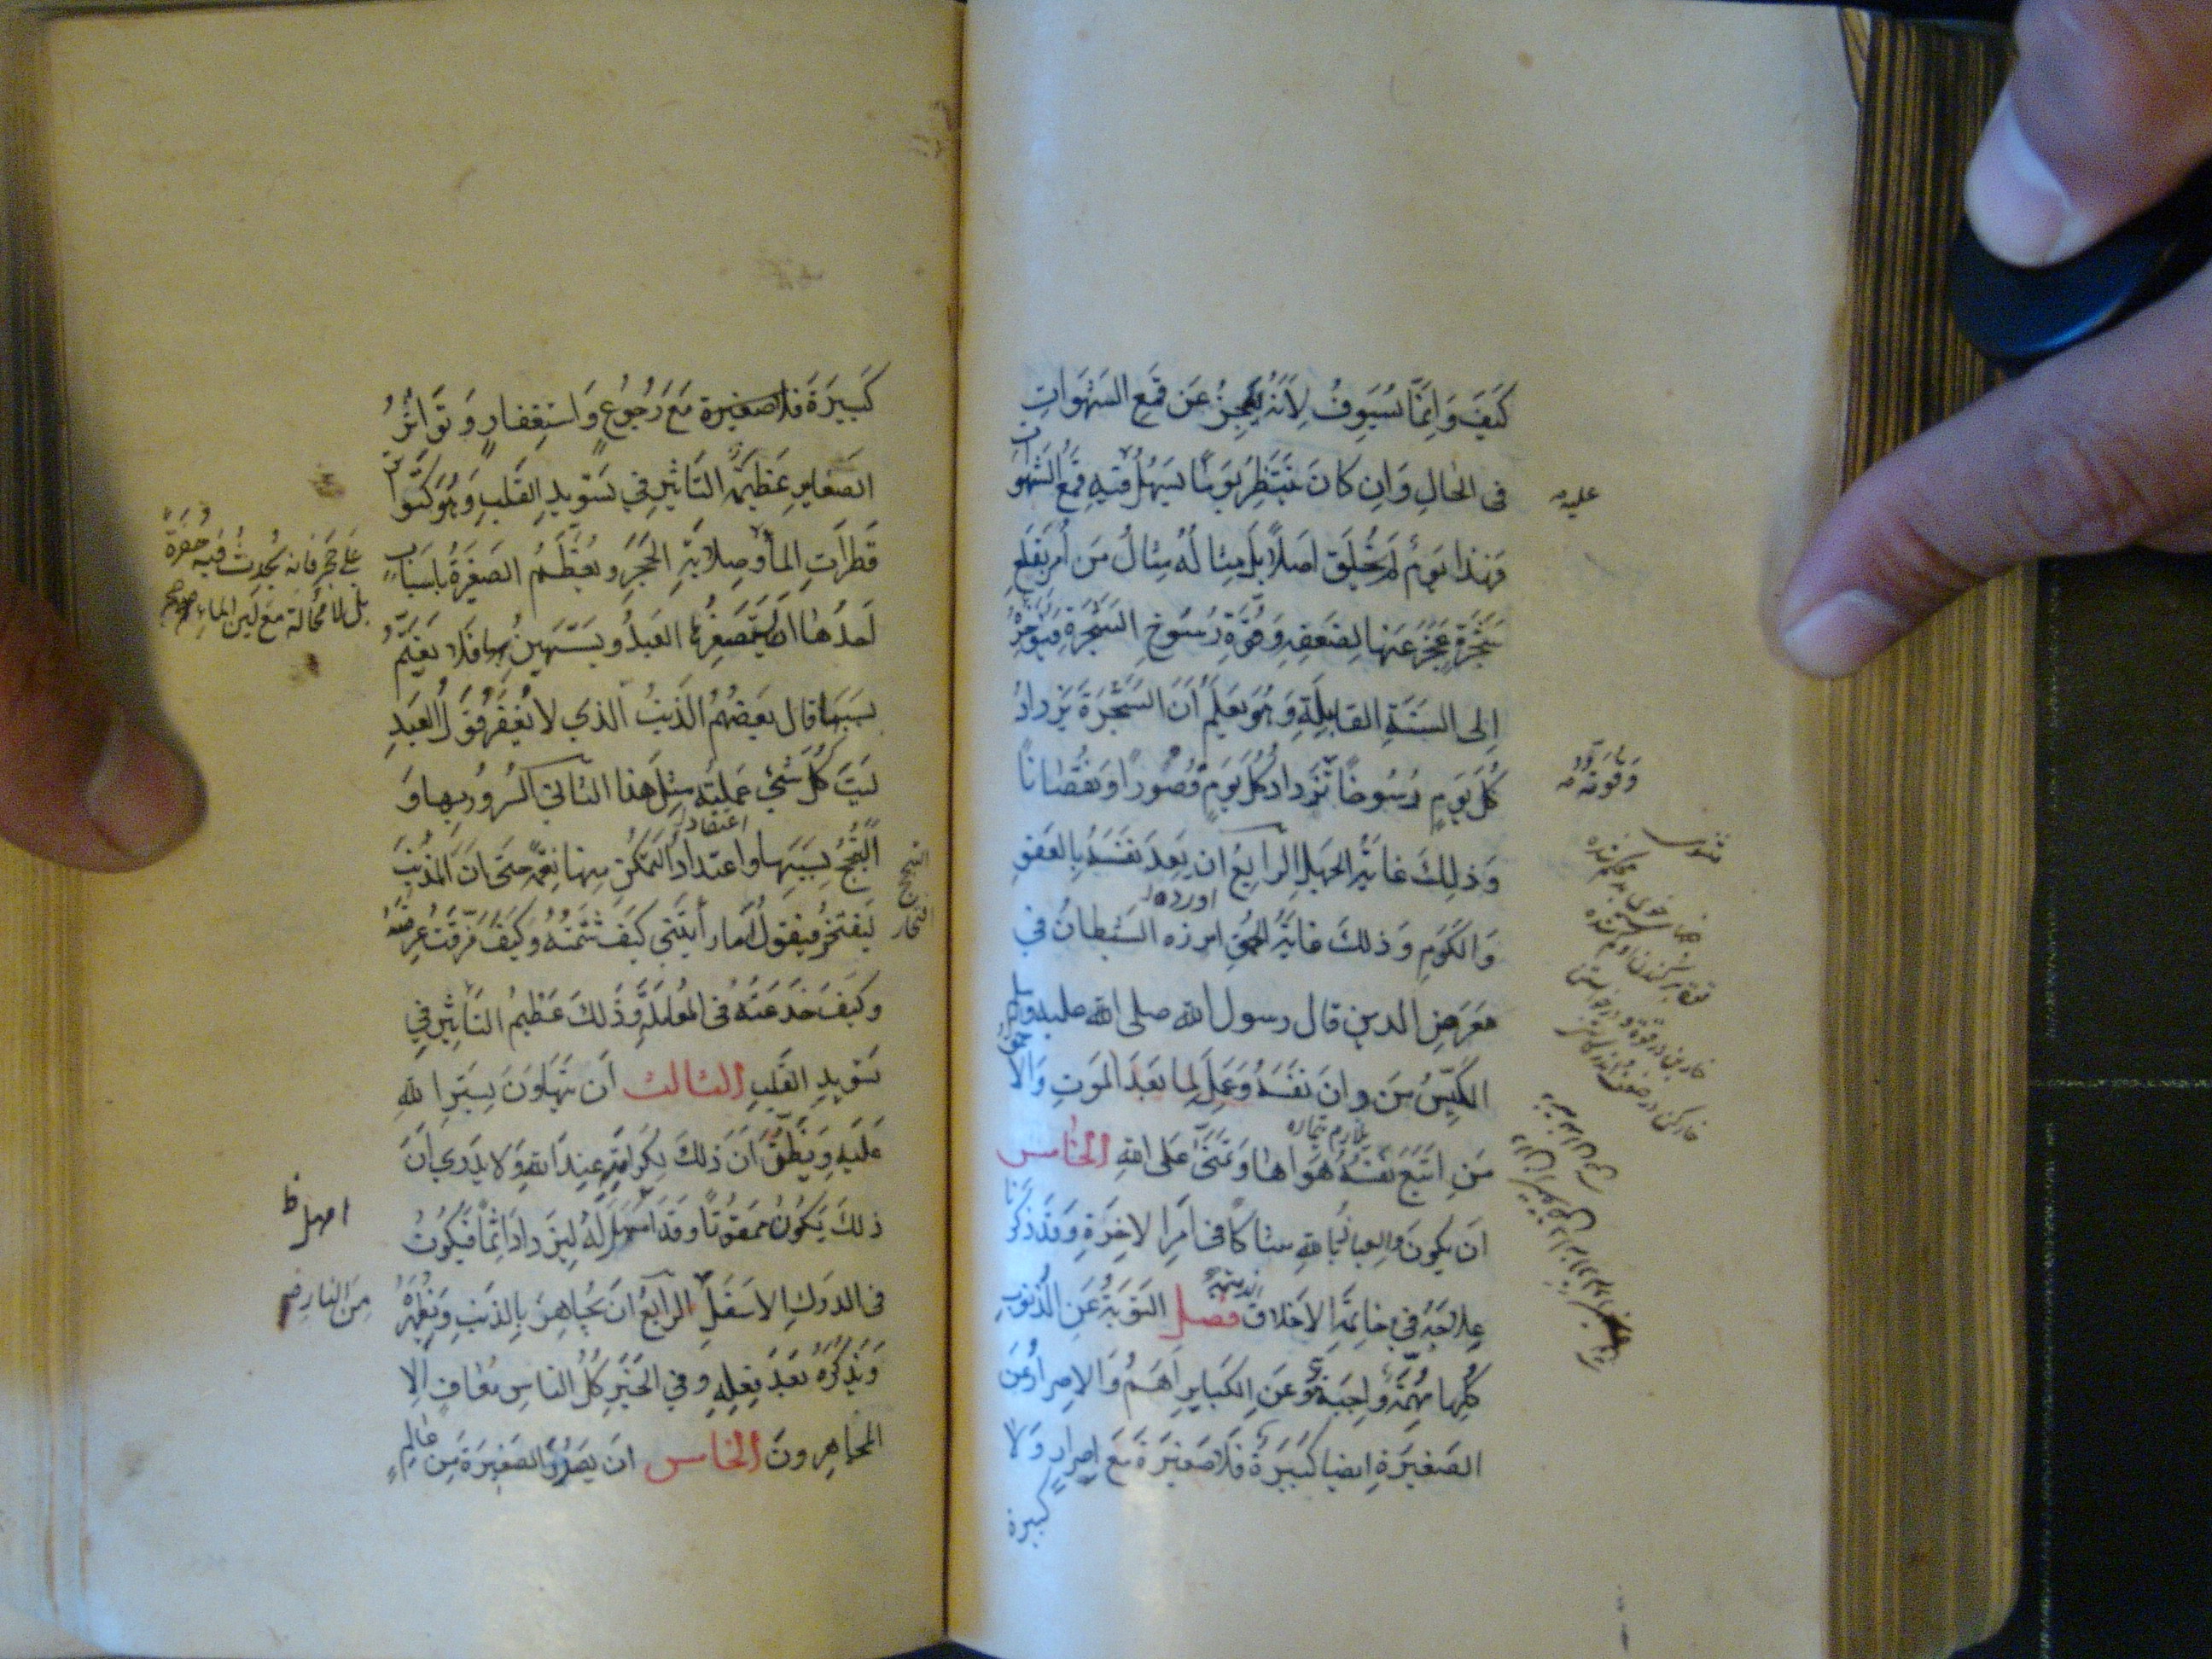 كَيفَ وَاِنَّمَا يُسَوِّفُ لِاَنَّهُ يَعجِزُ عَن قَمعِ الشَهَوَاتِ
فى الحَالِ وَاِن كانَ يَنتَظِرُ يَومًا يَسهُلُ فيهِ قَمعُ الشَهَوات
عليه
فهَذا يَومٌ لَم يُخلَق اَصلاً بَل مِثالُهُ مِثالُ مَن اُمِرَ بقَلعِ
شَجَرَةٍ عَجَزَ عَنها لِضَعفِهِ وَقُوَّةِ رُسُوخِ الشَجَرَةِ فيُؤَخِّرُهُ
اِلى السَنَةِ القَابِلَةِ وَهُوَ يَعلَمُ اَنَّ الشَجَرَةَ يَزدادُ
كُلَّ يَومٍ رُسُوخًا تَزداد كُلَّ يَومٍ قُصُورًا وَنُقصَانًا
وَقُوَّتُهُ
وَذلِكَ غايَةُ الجَهلِ الرابِعُ ان يَعِدَ نَفسَهُ بِالعَفوِ
وَالكَرَمِ وَذلكَ غايَةُ الحُمقِ ابرزه الشَيطانُ فى
اورده
مَعرَضِ الدينِ قال رسول الله صلى الله عليه وسلم
الكَيِّسُ مَن دانَ نَفسَهُ وَعَمِلَ لِما بَعدَ المَوتِ وَالاحمق
مَنِ اتبَعَ نَفسَهُ هَوَاها وَتَمَنَّى عَلى اللهِ الخامس
ان يَكونَ والعياذُ بالله شاكًّا فى اَمرِ الاخِرَةِ وَقَد ذَكَرنَا
عِلاجَهُ فى خاتِمَةِ الاَخلاق فصل التَوبَةُ عَنِ الذُنُوبِ
كُلِّها مُهِمَّةٌ وَاجِبَةٌ وَعَنِ الكَبايِرِ اَهَمُّ وَالاِصرارُ عَلى
الصَغيرَةِ ايضا كَبيرَةٌ فَلا صَغيرَةَ مَعَ اِصرارٍ وَلا
كبيرة
كَبيرَةَ مَعَ رُجُوعٍ وَاستِغفارٍ وَتَوَاتُرُ
الصَغايرِ عَظيمَةُ التَأثيرِ فى تَسويدِ القَلبِ وَهُوَ كَتَوَاتُرِ
قَطَرَاتِ الماءِ وصِلابَةِ الحَجَرِ وتُعَظَّمُ الصَغيرَةُ باَسبابٍ
عَلى حَجَرٍ فانه يُحدِثُ فيه حُفرَةً
بل لا مَحالَة مَعَ لين الماء
اَحَدُها ان يَستَصغِرُها العَبدُ ويَستَهينُ بِها فلا يَغتَمُّ
بِسَبَبها قال بَعضُهُم الذَنبُ الَّذي لا يُغفَرُ قَولُ العَبدِ
لَيتَ كُلَّ شَئٍ عَمِلتُه مِثلَ هَذا الثانى السُرورُ بها وَ
التَبَجُّحُ بِسَبَبِها واعتدادُ التَمَكُّنِ مِنها نِعمَةً حَتى اَنَّ المُذنِبَ
اعتقاد
لَيَفتَخِرُ فيقولُ اَما رَأيتَنى كَيفَ شَتَمتُهُ وكَيفَ مَزَّقتُ عِرضَهُ
وكَيفَ خَدَعتُهُ فى المُعامَلَةِ وذلكَ عَظيمُ التَأثيرِ فى
تَسويدِ القَلبِ الثالث اَن يَتهَاوَنَ بِسَترِ اللهِ
عَلَيهِ وَيَظُنَّ اَنَّ ذلكَ لِكَرامَتِهِ عِندَ اللهِ وَلا يَدري اَنَّ
ذلكَ يَكُونُ مَمقُوتًا وقَد اُمهِلَ لَهُ لِيَزدادَ اِثمًا فَيَكُونُ
امهل ظ
فى الدَركِ الاَسفَلِ الرابعُ اَن يُجاهِرَ بِالذَنبِ وَيُظهِرَهُ
مِنَ النار
وَيَذكُرَهُ بَعدَ فِعلِهِ وفى الخَبَرِ كُلُّ الناسِ مُعافًى اِلا
المُجاهِرونَ الخامس ان يَصدُرَ الصَغيرَةُ مِن عَالِمٍ